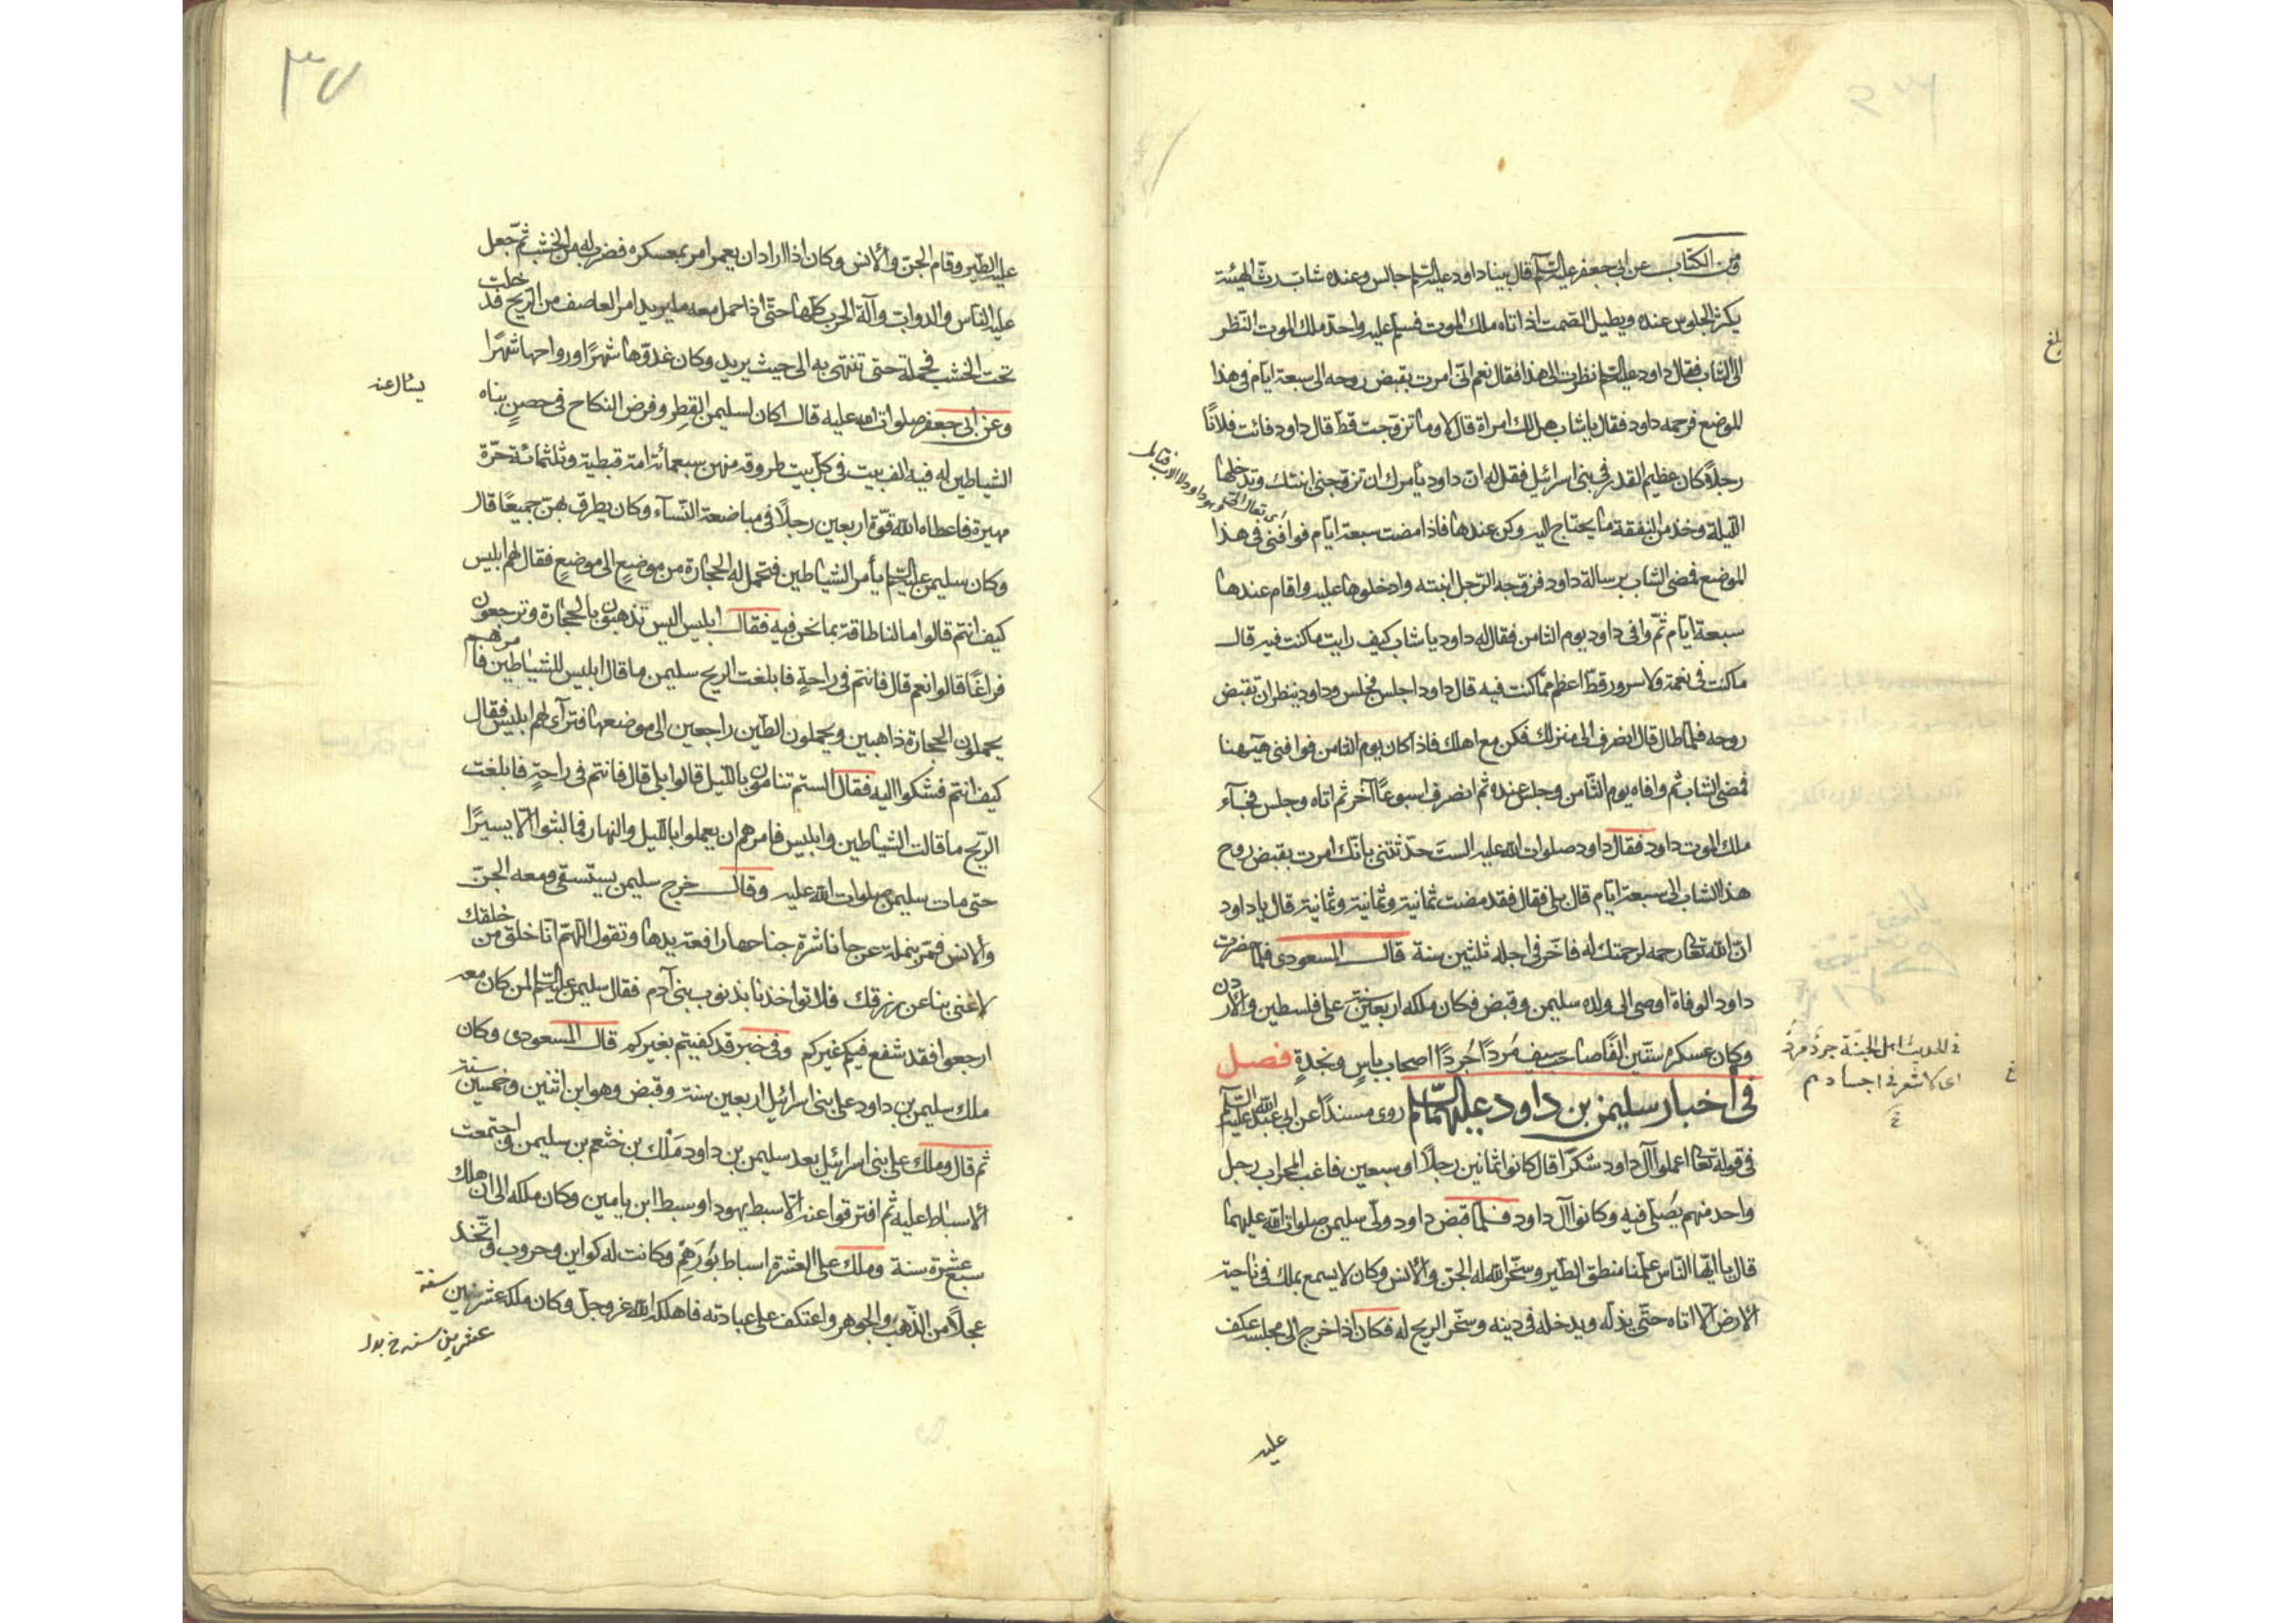 ومن الكتاب عن ابى جعفر عليه السلم قال بينا داود عليه السلم جالس وعنده شاب رث الهيئة
يكثر الجلوس عنده ويطيل الصمت اذا تاه ملك الموت فسلم عليه واحد ملك الموت النظر
الى الشاب فقال داود عليه السلم نظرت الى هذا فقال نعم انى امرت بقبض روحه الى سبعة ايام فى هذا
الموضع فرحمه داود فقال يا شاب هل لك امراة قال لا وما تزوجت قط قال داود فائت فلانًا
رجلا كان عظيم القدر فى بنى اسرائيل فقل له ان داود يأمرك ان تزوجنى ابنتك وتدخلها
الليلة وخذ من النفقة ما يحتاج اليه وكن عندها فاذا مضت سبعة ايام فوافنى فى هذا
الموضع فمضى الشاب برسالة داود فزوجه الرجل ابنته وادخلوها عليه واقام عندها
سبعة ايام ثم وافى داود يوم الثامن فقال له داود يا شاب كيف رايت ما كنت فيه قال
ما كنت فى نعمة ولا سرور قط اعظم مما كنت فيه قال داود اجلس فجلس وداود ينتظر ان تقبض
روحه فلما طال قال انصرف الى منزلك فكن مع اهلك فاذا كان يوم الثامن فوافنى ههنا
فمضى الشاب ثم وافاه يوم الثامن وجلس عنده ثم انصرف اسبوعًا آخر ثم اتاه وجلس فجآء
ملك الموت داود فقال داود صلوات الله عليه الست حدثتنى بانك امرت بقبض روح
هذا الشاب الى سبعة ايام قال بلى فقال فقد مضت ثمانية وثمانية وثمانية قال يا داود
ان الله تعالى رحمه لرحمتك له فاخر فى اجله ثلثين سنة قال المسعودى فلما حضرت
داود الوفاة اوصى الى ولده سليمن وقبض فكان ملكه اربعين سنة على فلسطين والاردن
وكان عسكره ستين الفًا صاحب سيف مُردًا جُردًا اصحاب باسٍ ونجدةٍ فصل
فى اخبار سليمن بن داود عليهما السلام روى مسندًا عن ابى عبد الله عليه السلم
فى قوله تعالى اعملوا آل داود شكرًا قال كانوا ثمانين رجلاً او سبعين فاغب المحراب رجل
واحد منهم يصلى فيه وكانوا آل داود فلما قبض داود ولى سليمن صلوات الله عليهما
قال يا ايها الناس علمنا منطق الطير وسخر الله له الجن والانس وكان لا يسمع بملك فى ناحية
الارض الا اتاه حتى يذله ويدخله فى دينه وسخر الريح له فكان اذا خرج الى مجلسه عكف
عليه
فى الحديث اهل الجنة جرد مرد
اى لا شعر فى اجسادهم
بلغ
٣٧
عليه الطير وقام الجن والانس وكان اذا اراد ان يعمر امر بمعسكره فضرب له من الخشب ثم جعل
عليه الناس والدواب وآلة الحرب كلها حتى اذا حمل معه ما يريد امر العاصف من الريح فدخلت
تحت الخشب فحملته حتى تنتهى به الى حيث يريد وكان غدوها شهرًا ورواحها شهرًا
وعن ابى جعفر صلوات الله عليه قال كان لسليمن القطر وفرض النكاح فى حصنٍ بناه
الشياطين له فيه الف بيت فى كل بيت طروقة منهن سبعمائة امة قبطية وثلثمائة حرة
مهيرة فاعطاه الله قوة اربعين رجلاً فى مباضعة النسآء وكان يطرف بهن جميعًا قال
وكان سليمن عليه السلم يأمر الشياطين فتحمل له الحجارة من موضعٍ الى موضعٍ فقال لهم ابليس
كيف انتم قالوا ما لنا طاقة بما نحن فيه فقال ابليس اليس تذهبون بالحجارة وترجعون
فراغًا قالوا نعم قال فانتم فى راحةٍ فابلغت الريح سليمن ما قال ابليس للشياطين فامرهم
يحملون الحجارة ذاهبين ويحملون الطين راجعين الى موضعها فترآى لهم ابليس فقال
كيف انتم فشكوا اليه فقال الستم تنامون بالليل قالوا بلى قال فانتم فى راحةٍ فابلغت
الريح ما قالت الشياطين وابليس فامرهم ان يعملوا بالليل والنهار فما لبثوا الا يسيرًا
حتى مات سليمن صلوات الله عليه وقال خرج سليمن يستسقى ومعه الجن
والانس فمر بنملة عرجا ناشرة جناحها رافعة يدها وتقول اللهم انا خلق من خلقك
لا غنى بنا عن رزقك فلا تواخذنا بذنوب بنى آدم فقال سليمن عليه السلم لمن كان معه
ارجعوا فقد شفع فيكم غيركم وفى خبر قد كفيتم بغيركم قال المسعودى وكان
ملك سليمن بن داود على بنى اسرائيل اربعين سنة وقبض وهو ابن اثنين وخمسين سنة
ثم قال وملك على بنى اسرائيل بعد سليمن بن داود مَلِك بن خثعم بن سليمن واجتمعت
الاسباط عليه ثم افترقوا عنه الا سبط يهودا وسبط ابن يامين وكان ملكه الى ان هلك
سبع عشرة سنة وملك على العشرة اسباط بورهم وكانت له كواين وحروب واتخذ
عجلاً من الذهب والجوهر واعتكف على عبادته فاهلكه الله عز وجل وكان ملكه عشر سنين
يسئل عنه
عشرين سنه خ بدل